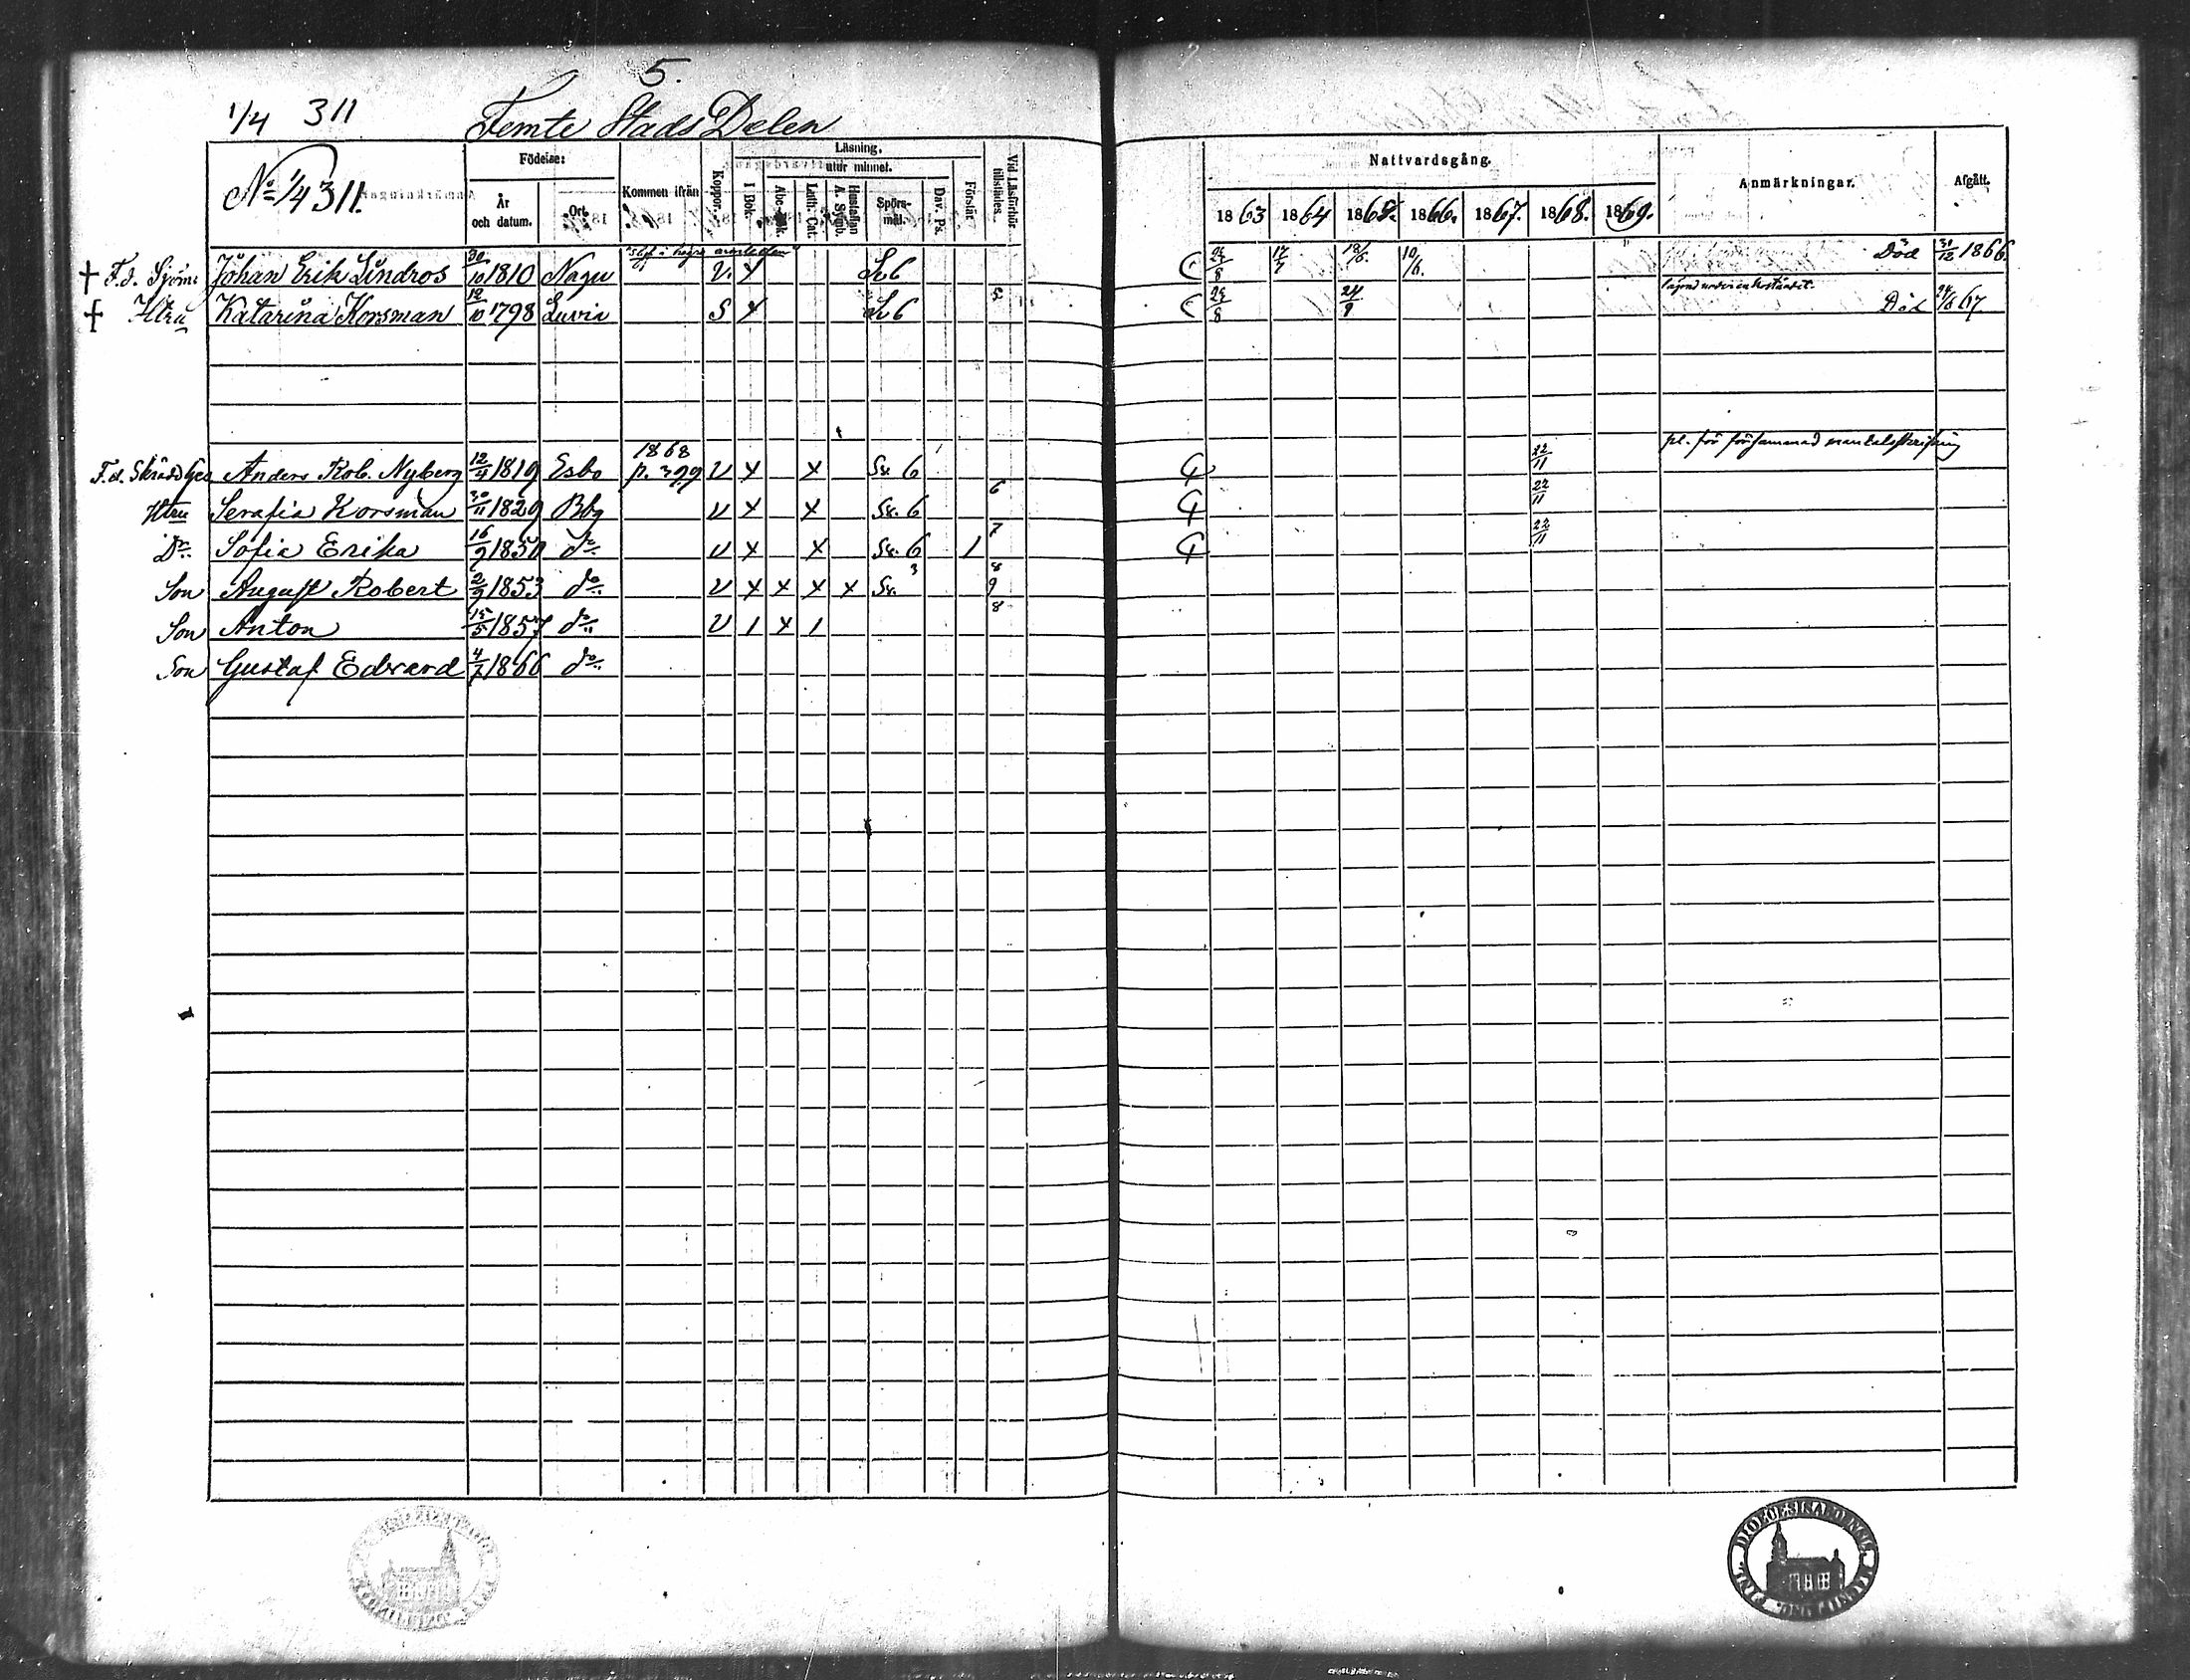 5.
1/4 311 Femte Stads Delen
No 1/4 311.
Födelse:
År och datum.
Ort.
Kommen ifrån
Koppor.
Läsning.
utur minnet.
I Bok.
Abc-Bok.
Luth. Cat.
Hustaflan A. Symb.
Spörsmål.
Dav. Ps.
Förstår
Vid Läsförhör tillstädes.
Nattvardsgång.
1863 1864 1865. 1866. 1867. 1868. 1869.
Anmärkningar.
Afgått.
† F.d. Sjöm. Johan Erik Lindros 30/10 1810 Nagu V. x Sv 6 C 23/8 17/7 18/6. 10/6. Död 31/12 1866.
† Hstru Katarina Korsman 12/10 1798 Luvia S x 5 Sv 6 C 23/8 24/9 Död 24/6 67.
1868
F.d. Skrädd Ges Anders Rob. Nyberg 12/4 1819 Esbo p. 399 V x x Sv. 6 22/11
Hstru Serafia Korsman 30/11 1829 Bbg V x x Sv. 6 6 22/11
Dr. Sofia Erika 16/9 1850 do V x x Sv. 6 1 7 22/11
Son August Robert 2/9 1853 do V x x x x Sv. 3 8 9
Son Anton 15/5 1857 do V 1 x 1 8
Son Gustaf Edvard 4/7 1866 do